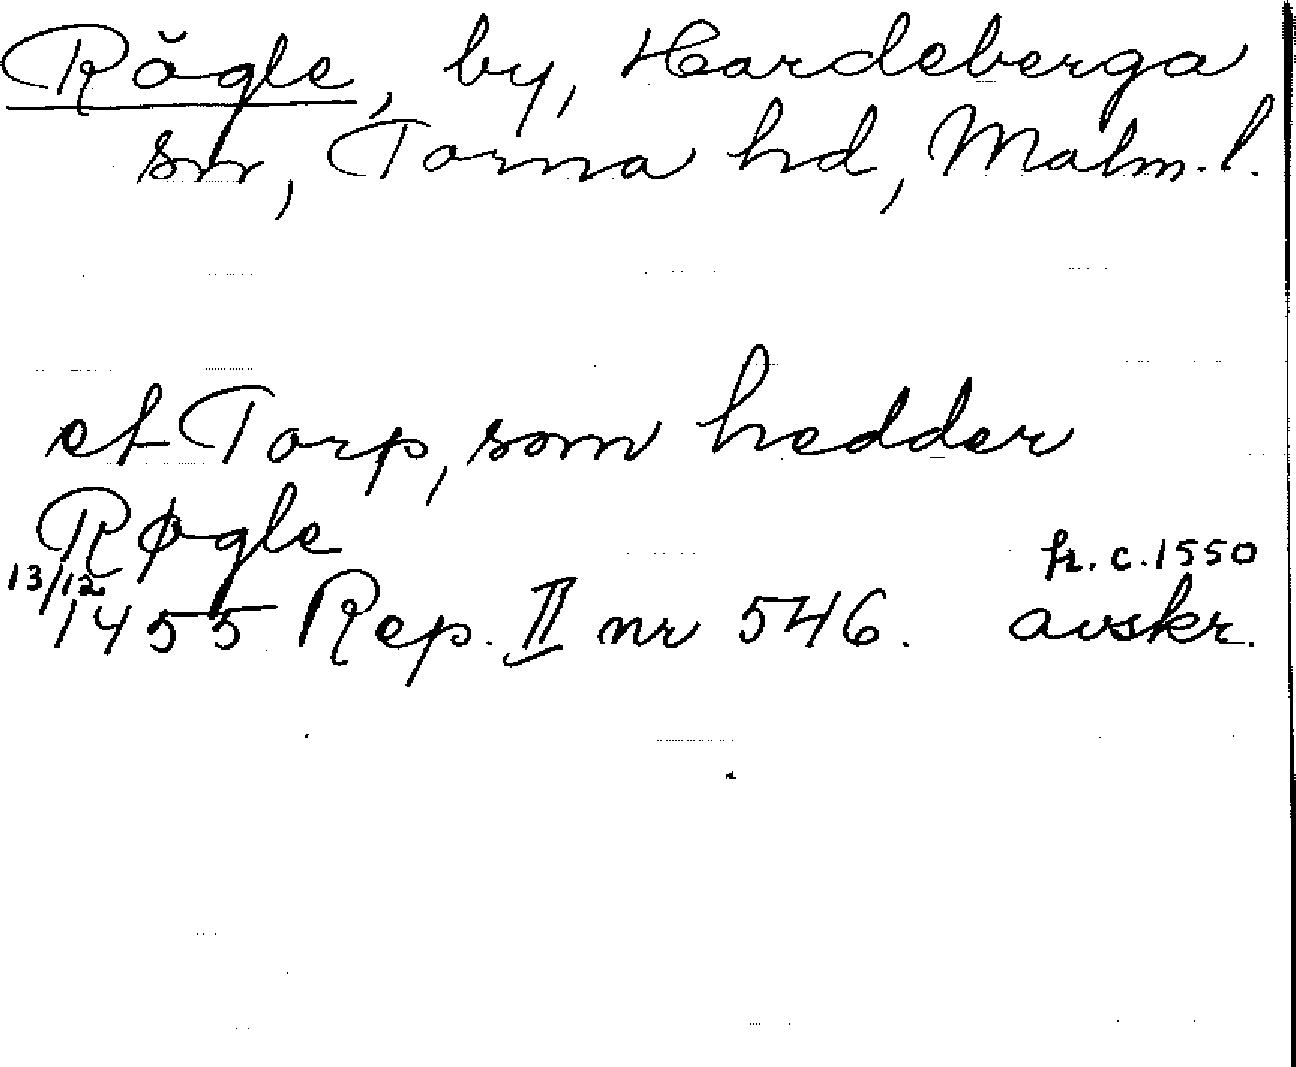 Rögle, by, Hardeberga
sn, Torna hd, Malm. l.
et Torp, som hedder
Røgle
13/12 fr. c. 1550
1455 Rep. II nr 546. avskr.